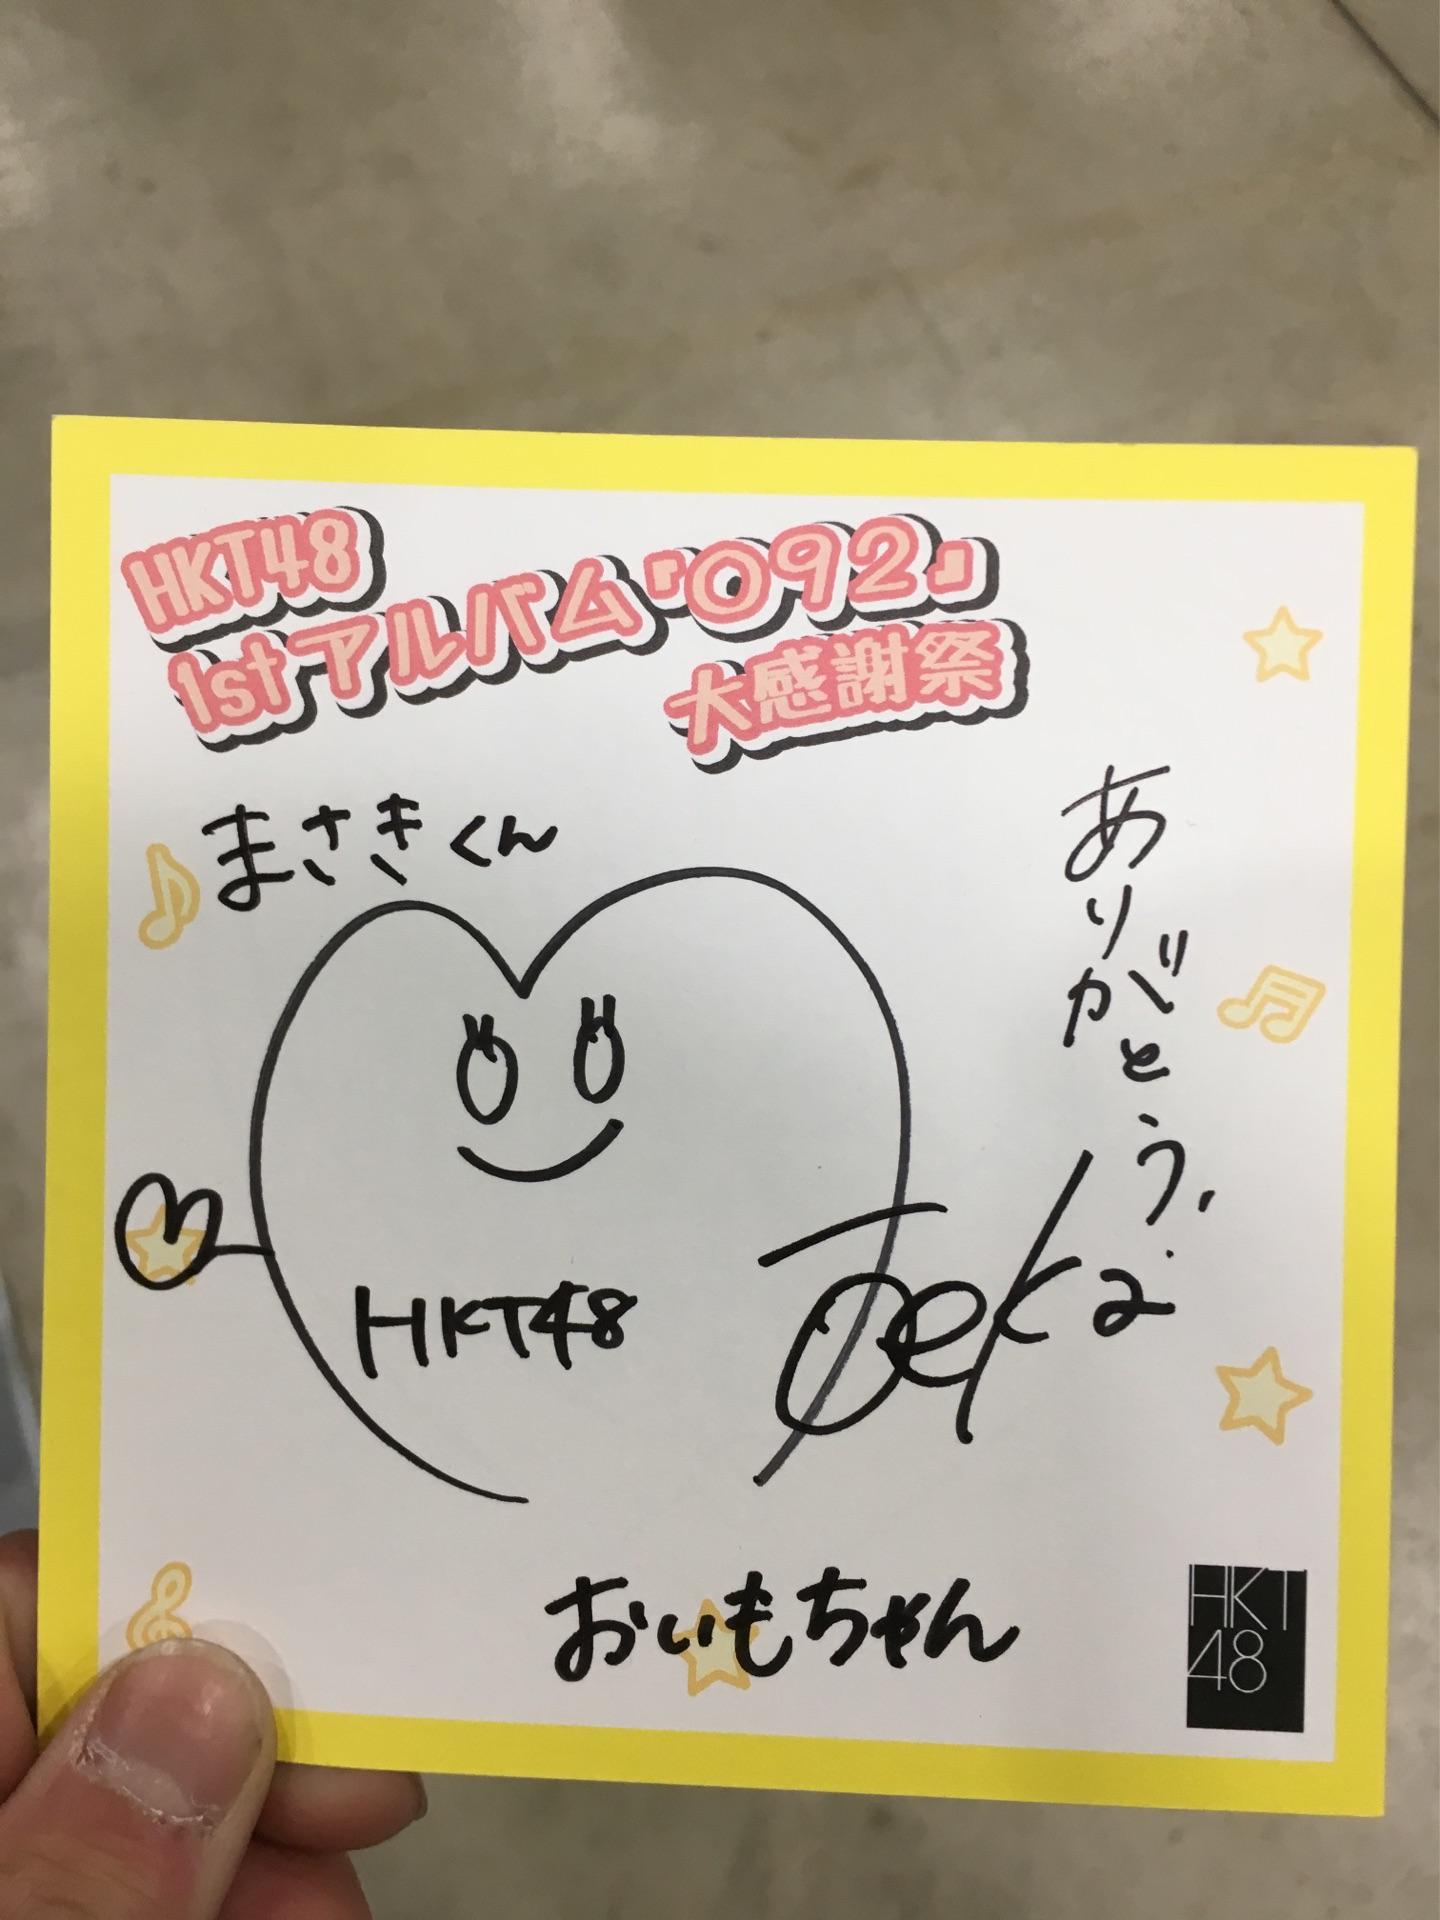 HKT48
1stアルバム「092」
大感謝祭
まさきくん
ありがとう。
HKT48
おいもちゃん
HKT
48